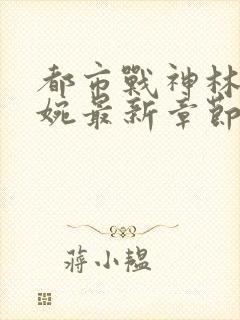 都市戰神林
婉最新章節
蔣小韞